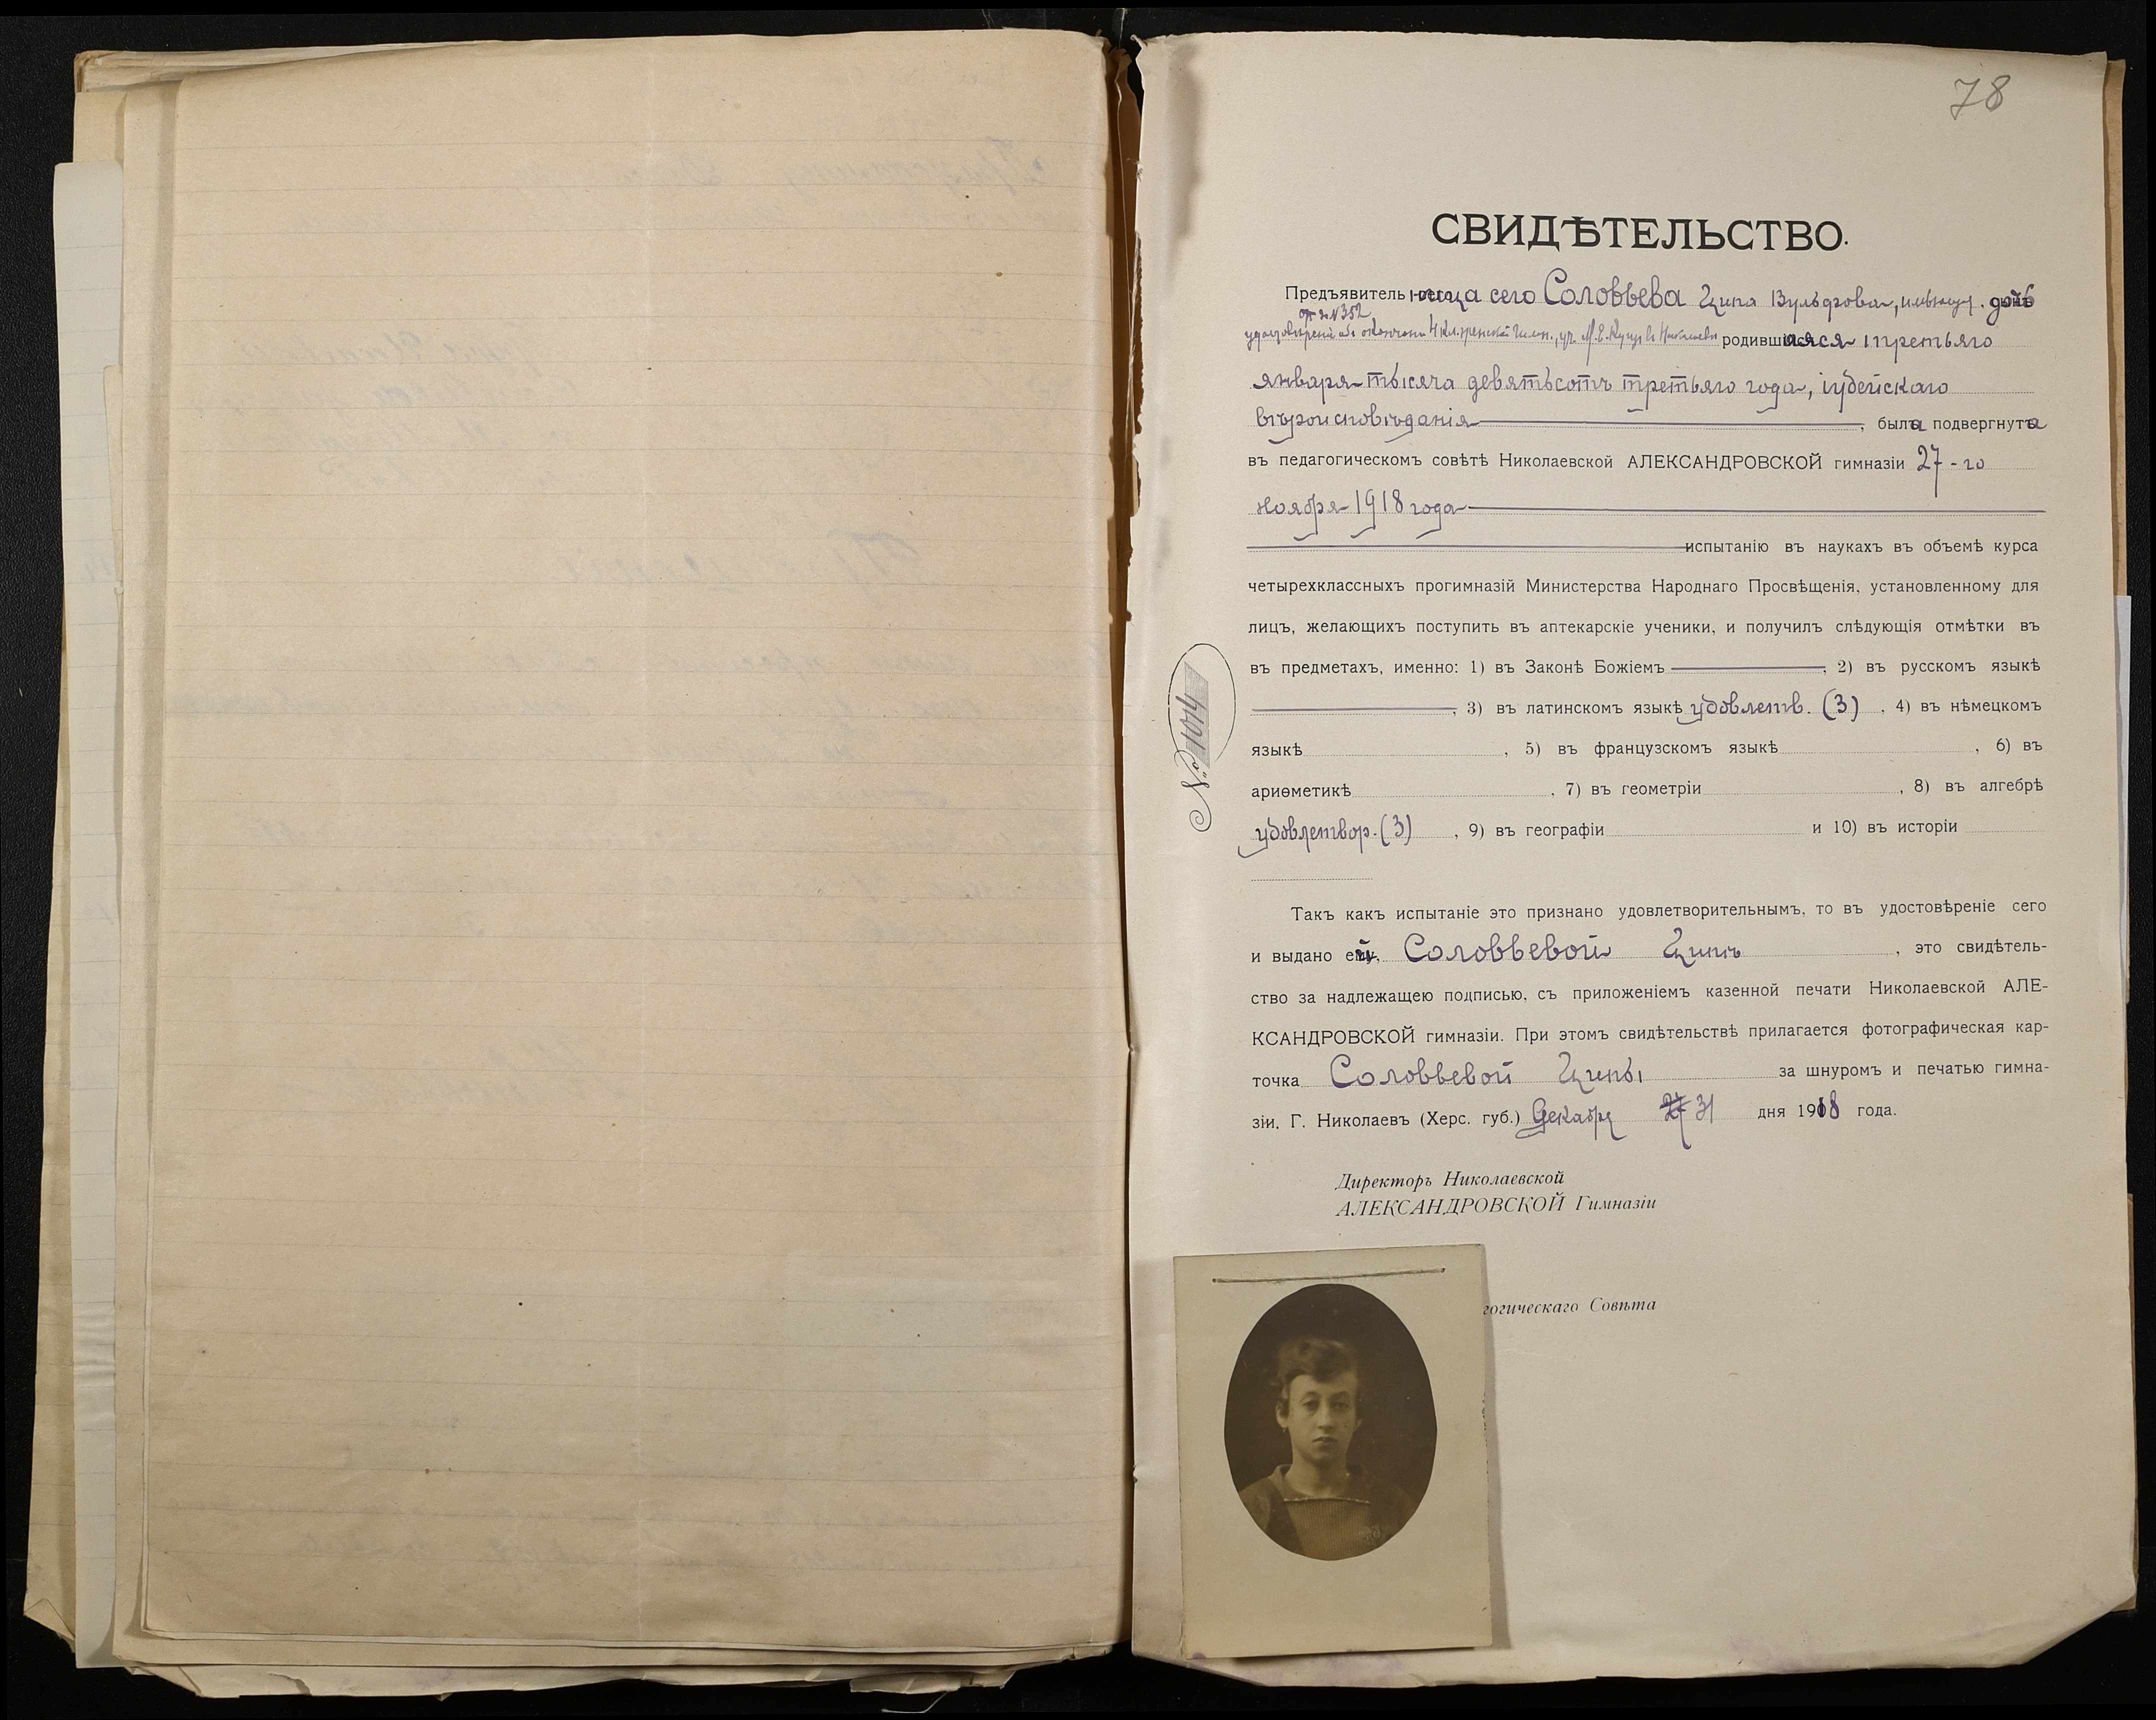 78
СВИДѢТЕЛЬСТВО.
Предъявительница сего Соловьева Ципа Вульфова, имѣющ. дочь
отъ № 352
удостовѣреніе объ окончаніи 4 кл. женской гимн., уч. М.Е. въ Николаевѣ родившаяся третьяго
января тысяча девятьсотъ третьяго года, іудейскаго
вѣроисповѣданія, была подвергнута
въ педагогическомъ совѣтѣ Николаевской АЛЕКСАНДРОВСКОЙ гимназіи 27-го
ноября 1918 года
испытанію въ наукахъ въ объемѣ курса
четырехклассныхъ прогимназій Министерства Народнаго Просвѣщенія, установленному для
лицъ, желающихъ поступить въ аптекарскіе ученики, и получилъ слѣдующія отмѣтки въ
въ предметахъ, именно: 1) въ Законѣ Божіемъ , 2) въ русскомъ языкѣ
, 3) въ латинскомъ языкѣ удовлетв. (3) , 4) въ нѣмецкомъ
языкѣ , 5) въ французскомъ языкѣ , 6) въ
ариѳметикѣ , 7) въ геометріи , 8) въ алгебрѣ
удовлетвор. (3) , 9) въ географіи и 10) въ исторіи
№ 1014
Такъ какъ испытаніе это признано удовлетворительнымъ, то въ удостовѣреніе сего
и выдано ей, Соловьевой Ципѣ , это свидѣтель-
ство за надлежащею подписью, съ приложеніемъ казенной печати Николаевской АЛЕ-
КСАНДРОВСКОЙ гимназіи. При этомъ свидѣтельствѣ прилагается фотографическая кар-
точка Соловьевой Ципы за шнуромъ и печатью гимна-
зіи. Г. Николаевъ (Херс. губ.) Декабря 31 дня 1918 года.
Директоръ Николаевской
АЛЕКСАНДРОВСКОЙ Гимназіи
гогическаго Совѣта